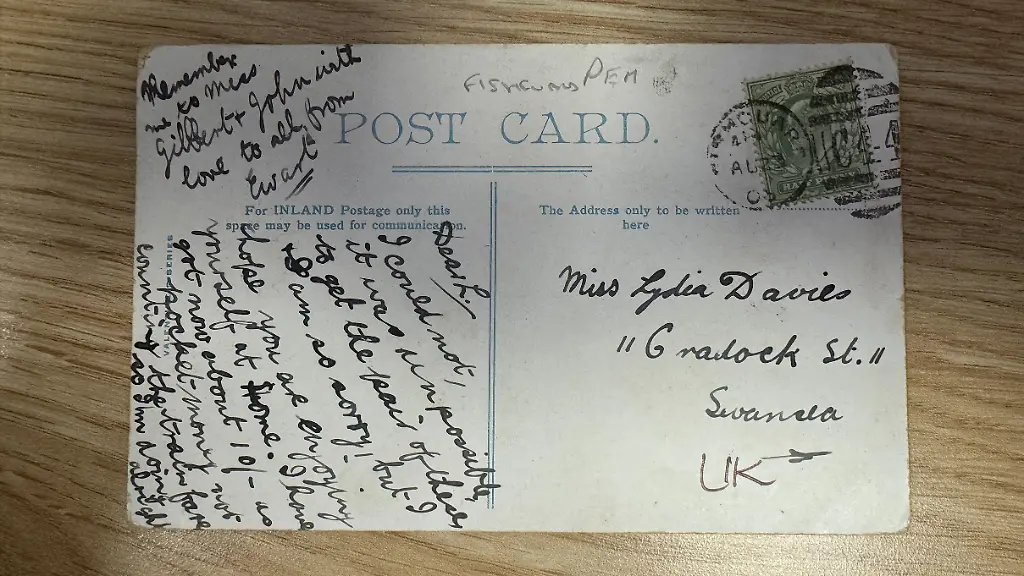 FISHGUARD PEM
POST CARD.
Remember
me to Miss
Gilbert & John with
love to all from
Ewart
For INLAND Postage only this
space may be used for communication.
The Address only to be written
here
Dear L.
I could not,
it was impossible,
to get the pair of these
I am so sorry! but I
hope you are enjoying
yourself at Home. I have
got now about 10/- as
pocket-money not
counting the train fare
so I'm doing alright
Miss Lydia Davies
"11 Cradock St."
Swansea
UK